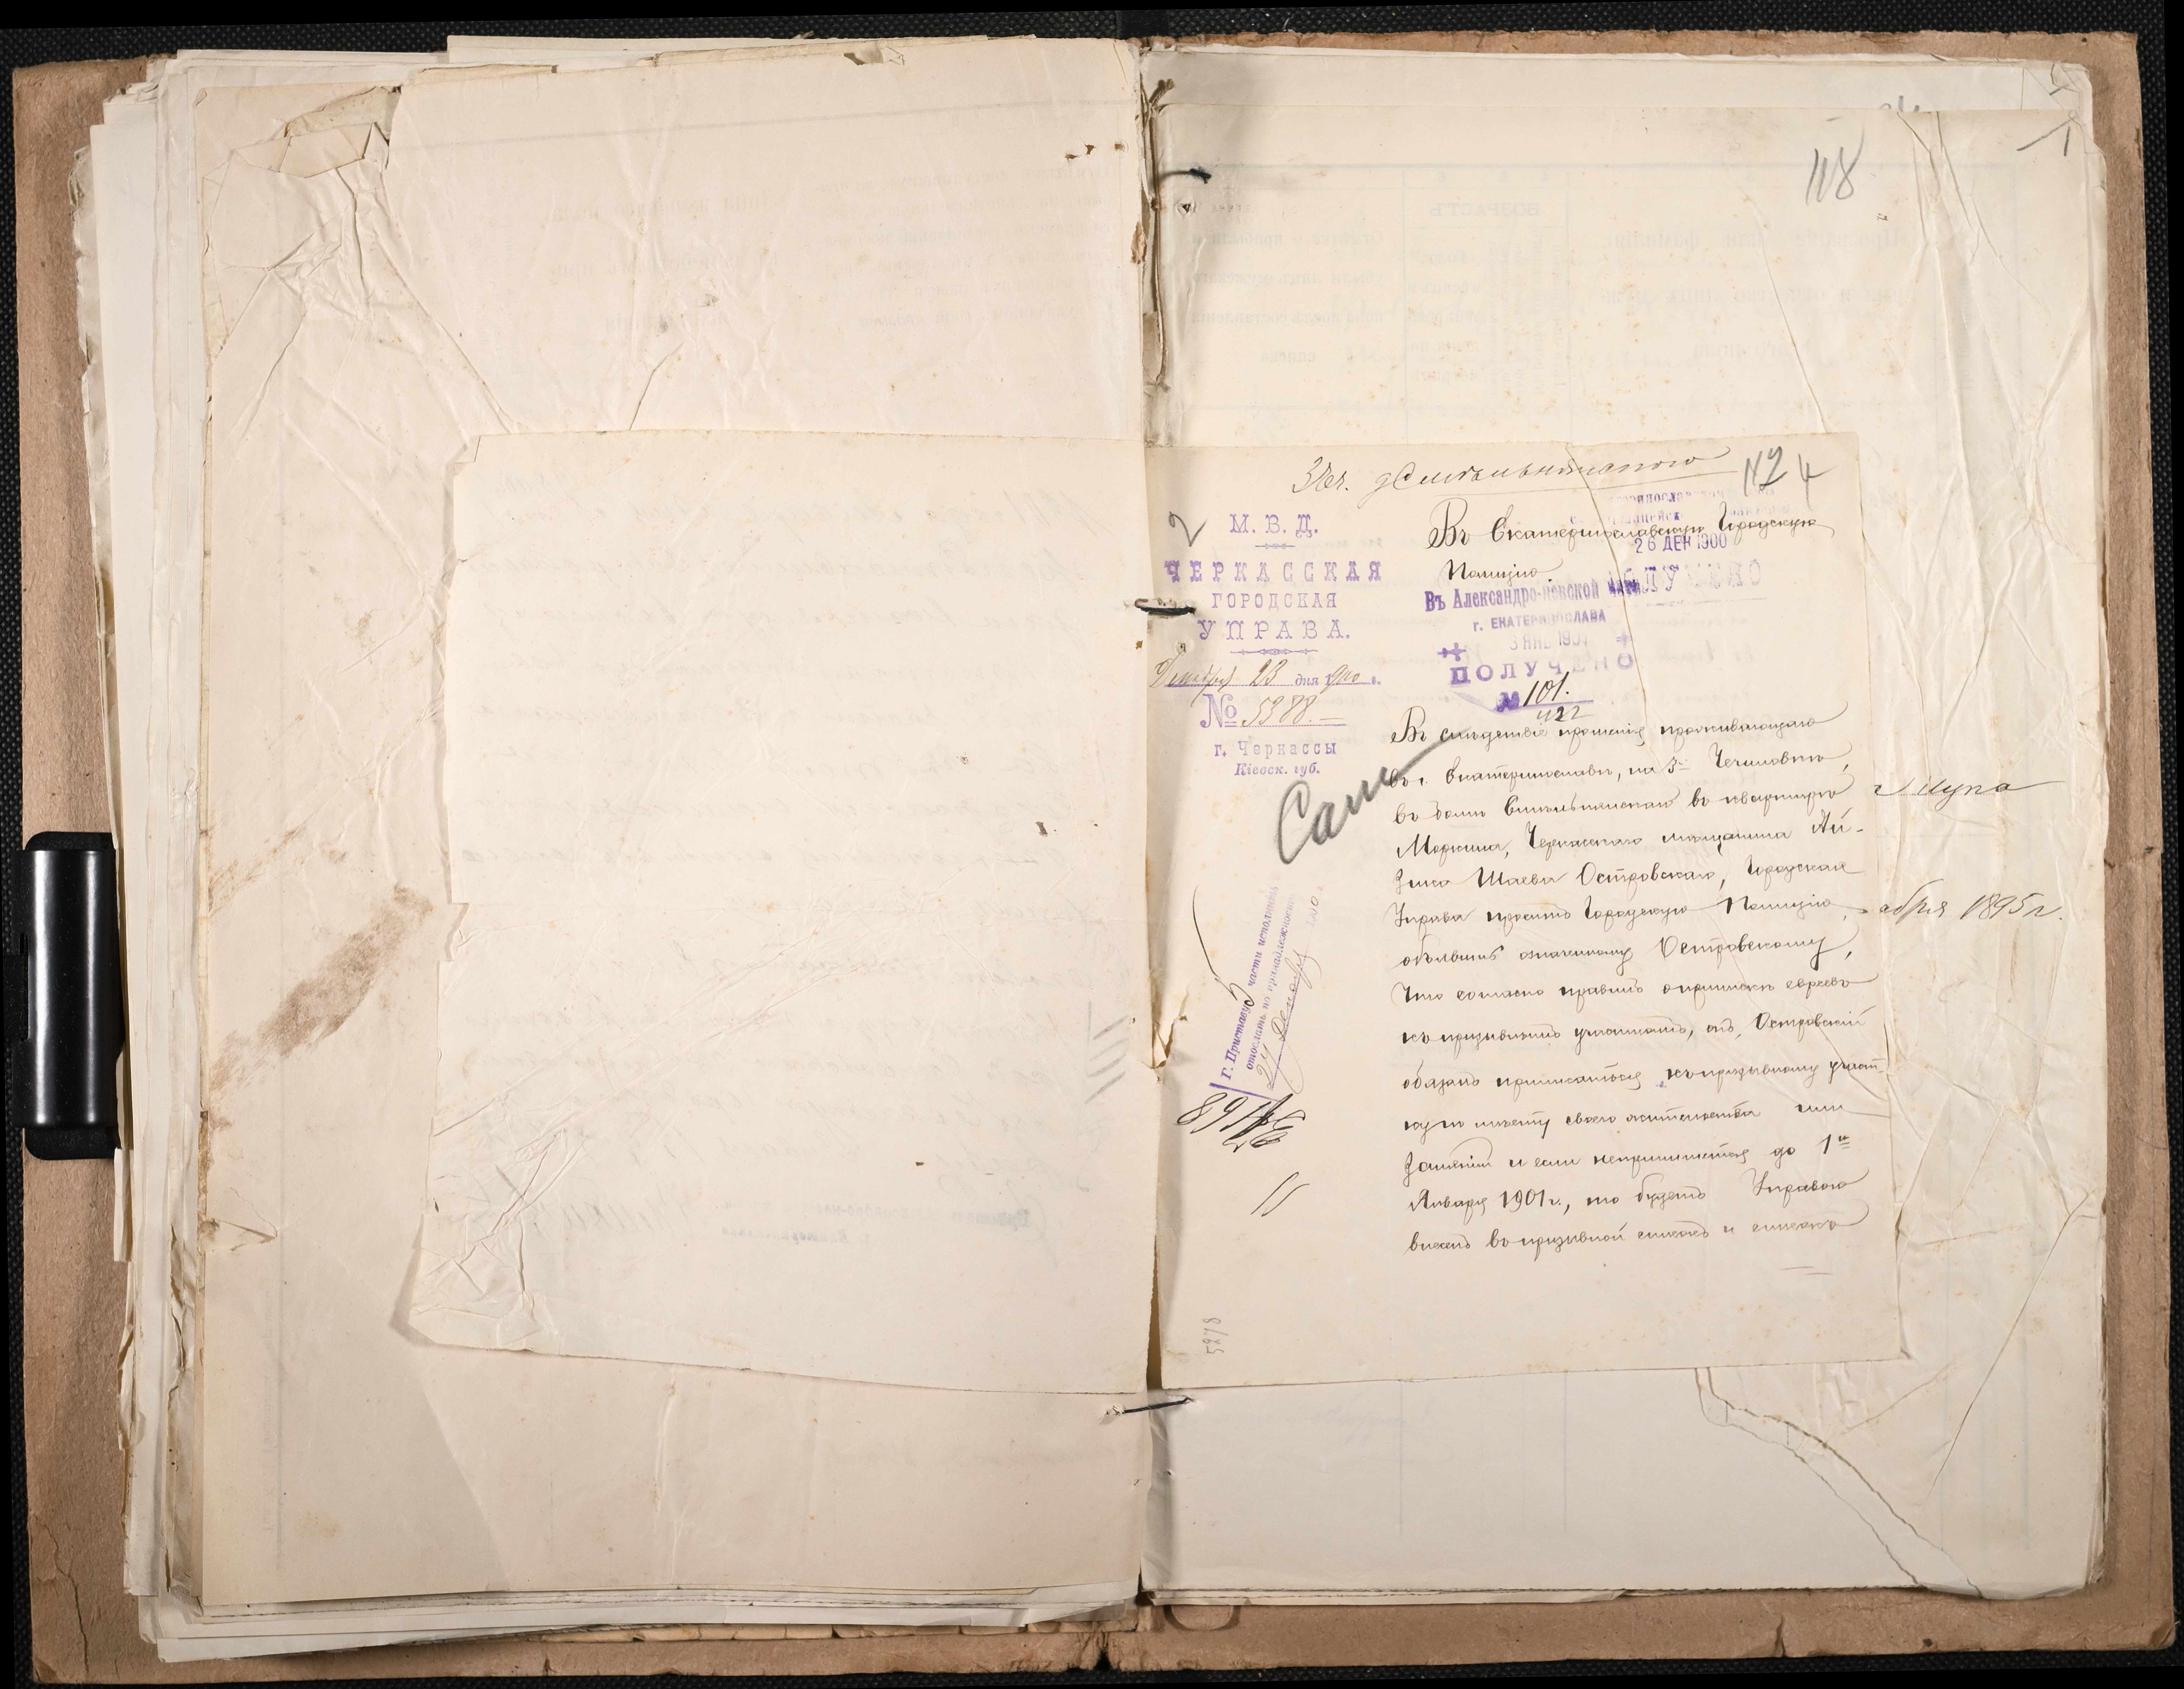 118
3 Чеч. д Смѣльнитскаго
112
4
2
М. В. Д.
ЧЕРКАССКАЯ
ГОРОДСКАЯ
УПРАВА.
Декабря 23 дня 1900 г.
№ 5388.
г. Черкассы
Кіевск. губ.
26 ДЕК 1900
ПОЛУЧЕНО
Въ Екатеринославскую Городскую
Полицію
Въ Александро-невской части
г. ЕКАТЕРИНОСЛАВА
3 ЯНВ 1901
ПОЛУЧЕНО
№ 101.
Въ слѣдствіе прошенія проживающаго
въ г. Екатеринославѣ, на 3й Чечиловкѣ,
въ домѣ въ квартирѣ
Моркина, Черкасскаго мѣщанина Ай-
зика Шаева Островскаго, Городская
Управа проситъ Городскую Полицію
объявить означенному Островскому,
что согласно правилъ о припискѣ евреевъ
къ призывнымъ участкамъ, онъ, Островскій
обязанъ приписаться къ призывному участ-
ку по мѣсту своего жительства или
занятій и если неприпишется до 1го
Января 1901 г., то будетъ Управою
внесенъ въ призывной списокъ и списокъ
Сам
абря 1895 г.
Г. Приставу 5 части исполнить
отослать по принадлежности
24 Декабря 1900
89168
5278